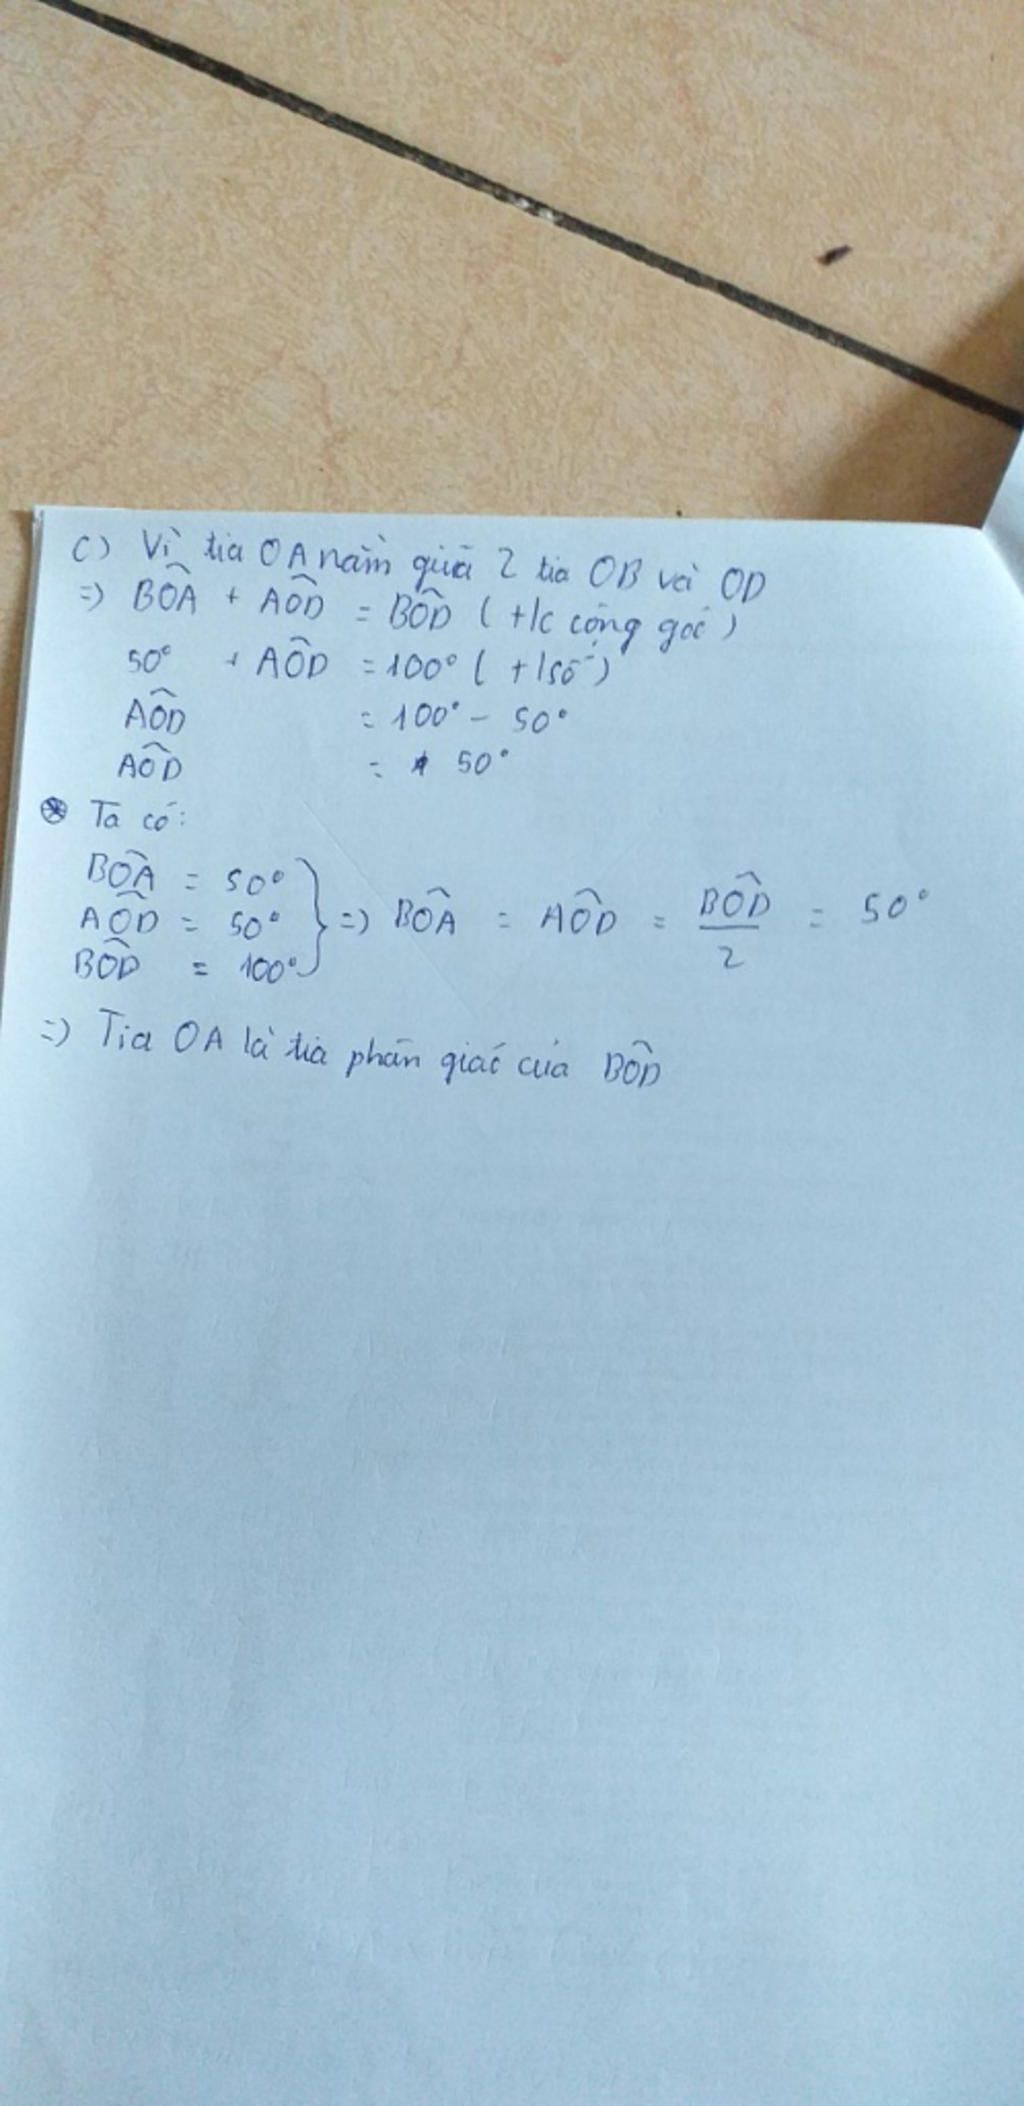 c) Vì tia OA nằm giữa 2 tia OB và OD
=> BÔA + AÔD = BÔD (t/c cộng góc)
50° + AÔD = 100° (t/số)
AÔD = 100° - 50°
AÔD = 50°
⊛ Ta có:
BÔA = 50°
AÔD = 50°
BÔD = 100°
=> BÔA = AÔD = BÔD/2 = 50°
=> Tia OA là tia phân giác của BÔD